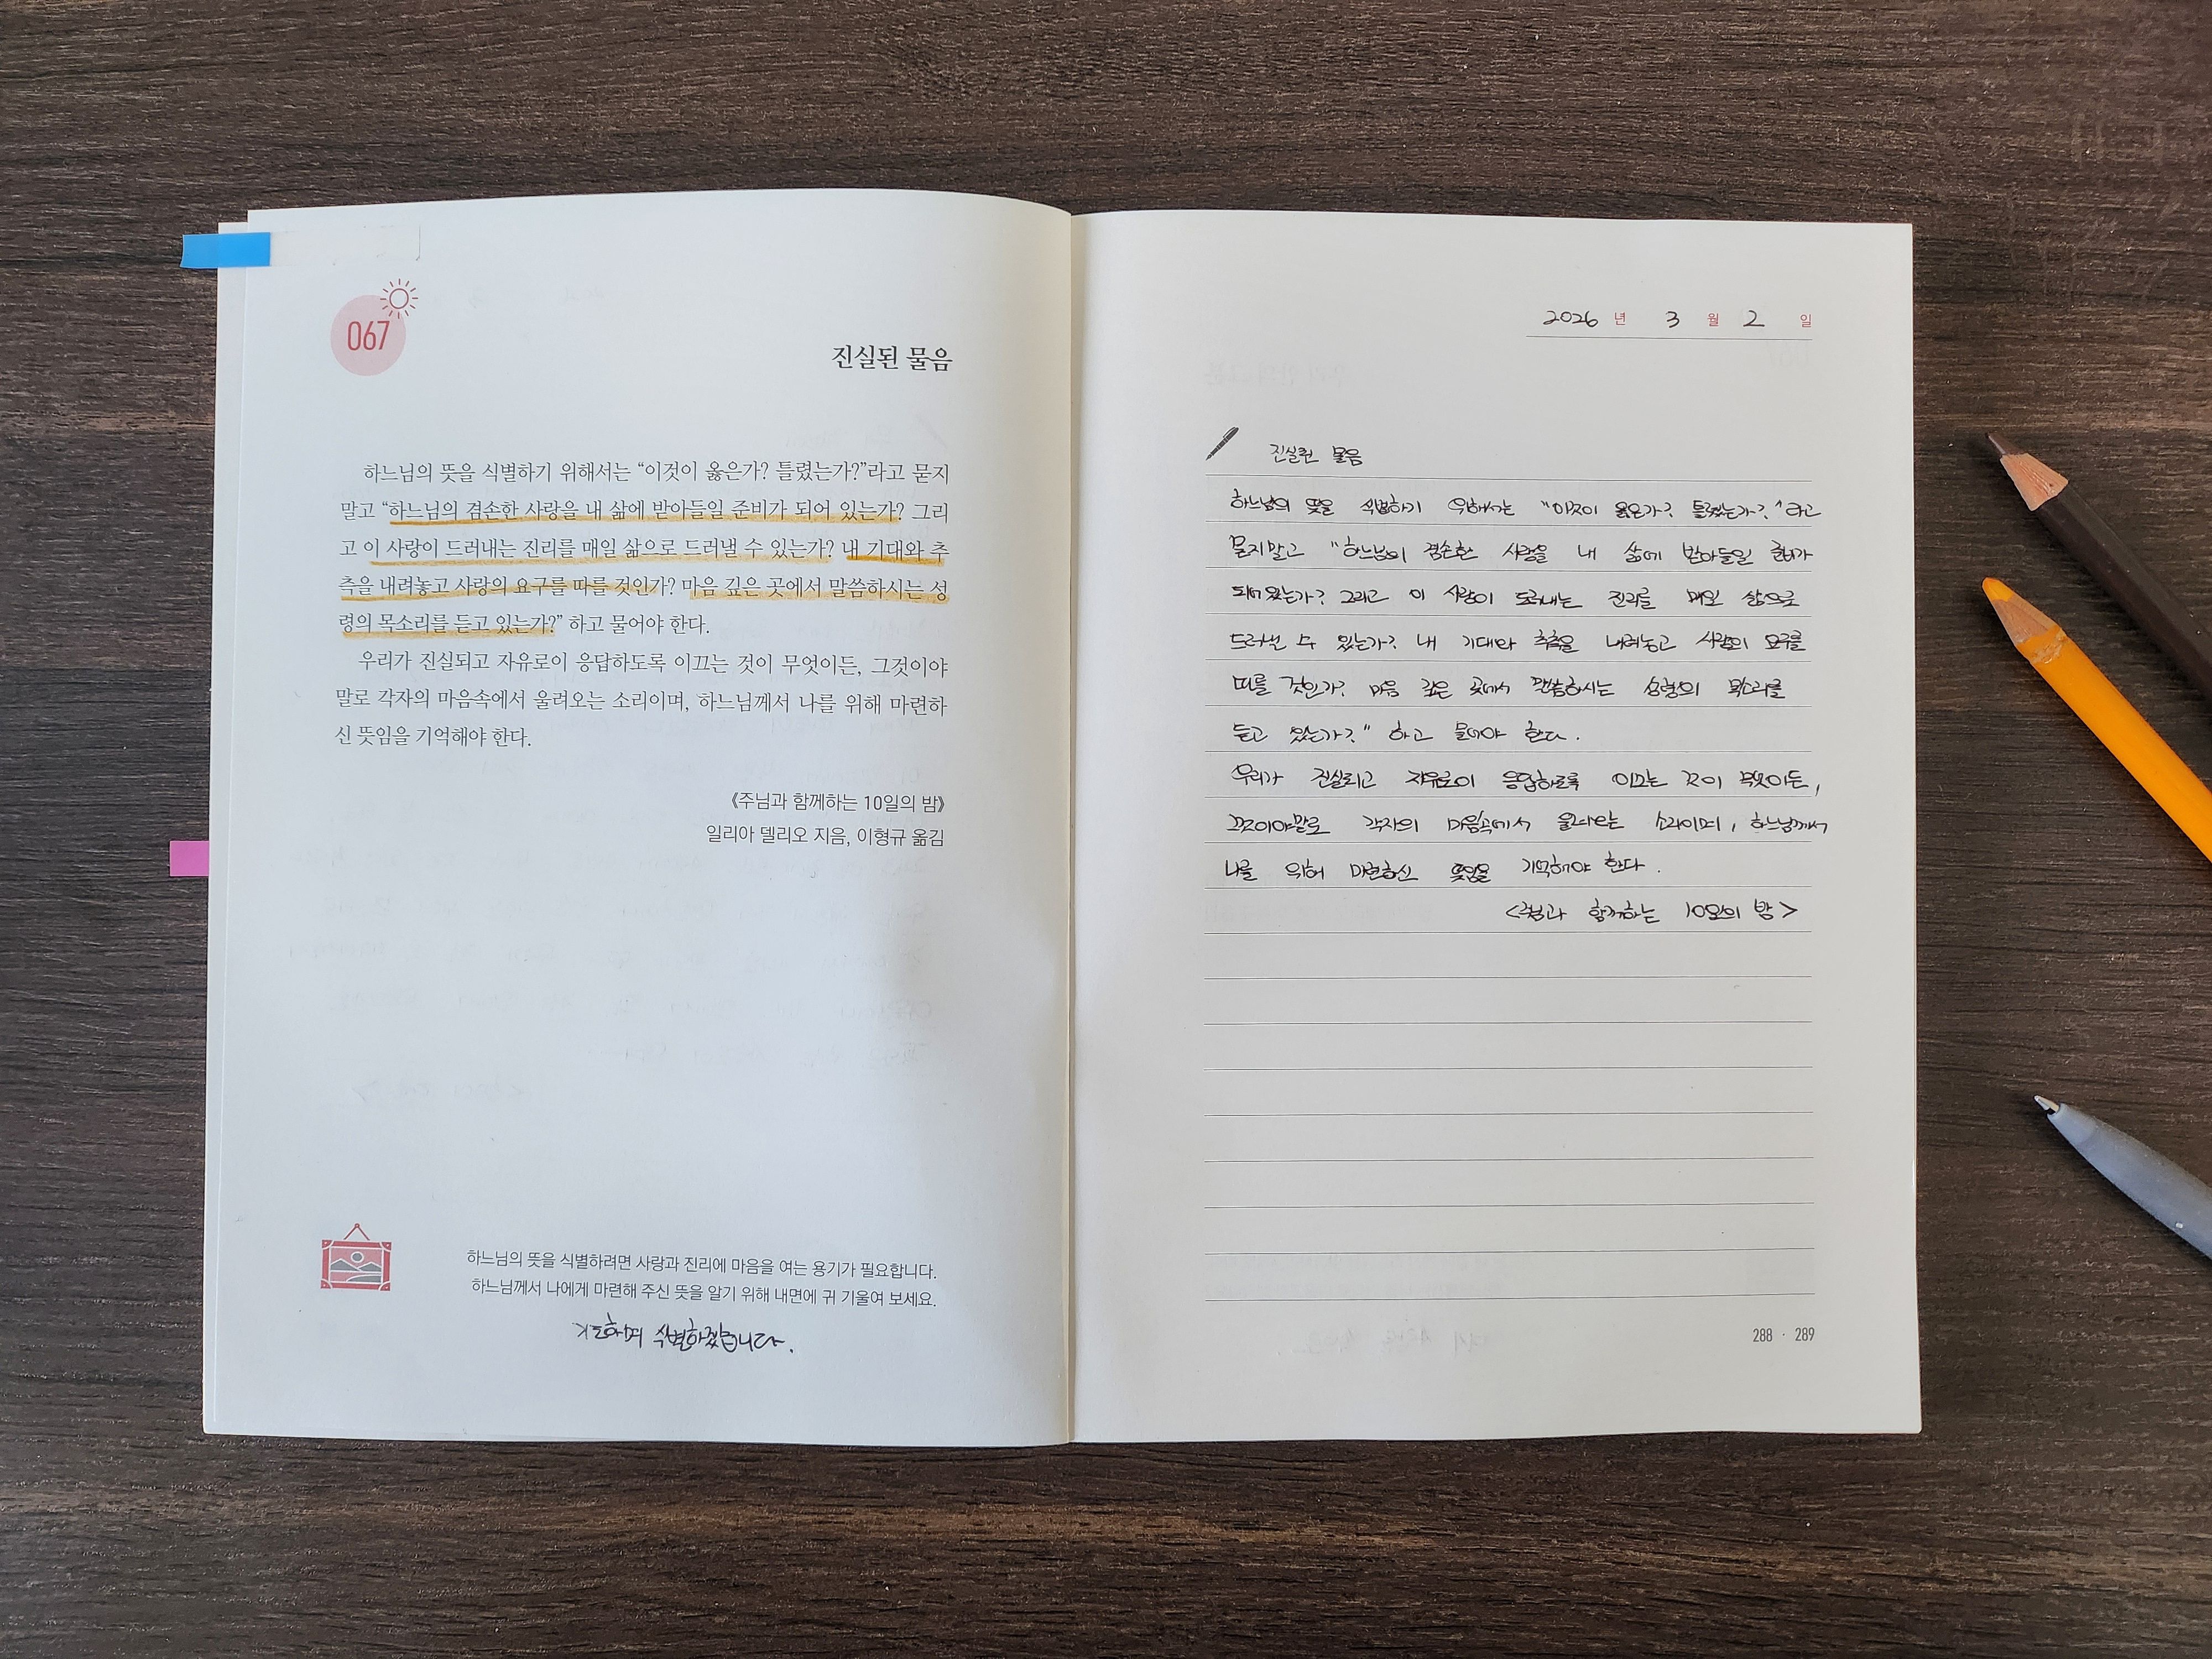 067
진실된 물음
하느님의 뜻을 식별하기 위해서는 “이것이 옳은가? 틀렸는가?”라고 묻지
말고 “하느님의 겸손한 사랑을 내 삶에 받아들일 준비가 되어 있는가? 그리
고 이 사랑이 드러내는 진리를 매일 삶으로 드러낼 수 있는가? 내 기대와 추
측을 내려놓고 사랑의 요구를 따를 것인가? 마음 깊은 곳에서 말씀하시는 성
령의 목소리를 듣고 있는가?” 하고 물어야 한다.
우리가 진실되고 자유로이 응답하도록 이끄는 것이 무엇이든, 그것이야
말로 각자의 마음속에서 울려오는 소리이며, 하느님께서 나를 위해 마련하
신 뜻임을 기억해야 한다.
《주님과 함께하는 10일의 밤》
일리아 델리오 지음, 이형규 옮김
하느님의 뜻을 식별하려면 사랑과 진리에 마음을 여는 용기가 필요합니다.
하느님께서 나에게 마련해 주신 뜻을 알기 위해 내면에 귀 기울여 보세요.
기도하며 식별하겠습니다.
2026 년 3 월 2 일
진실된 물음
하느님의 뜻을 식별하기 위해서는 "이것이 옳은가? 틀렸는가?" 라고
묻지말고 "하느님의 겸손한 사랑을 내 삶에 받아들일 준비가
되어 있는가? 그리고 이 사랑이 드러내는 진리를 매일 삶으로
드러낼 수 있는가? 내 기대와 추측을 내려놓고 사랑의 요구를
따를 것인가? 마음 깊은 곳에서 말씀하시는 성령의 목소리를
듣고 있는가?" 하고 물어야 한다.
우리가 진실되고 자유로이 응답하도록 이끄는 것이 무엇이든,
그것이야말로 각자의 마음속에서 울려오는 소리이며, 하느님께서
나를 위해 마련하신 뜻임을 기억해야 한다.
<주님과 함께하는 10일의 밤>
288 · 289